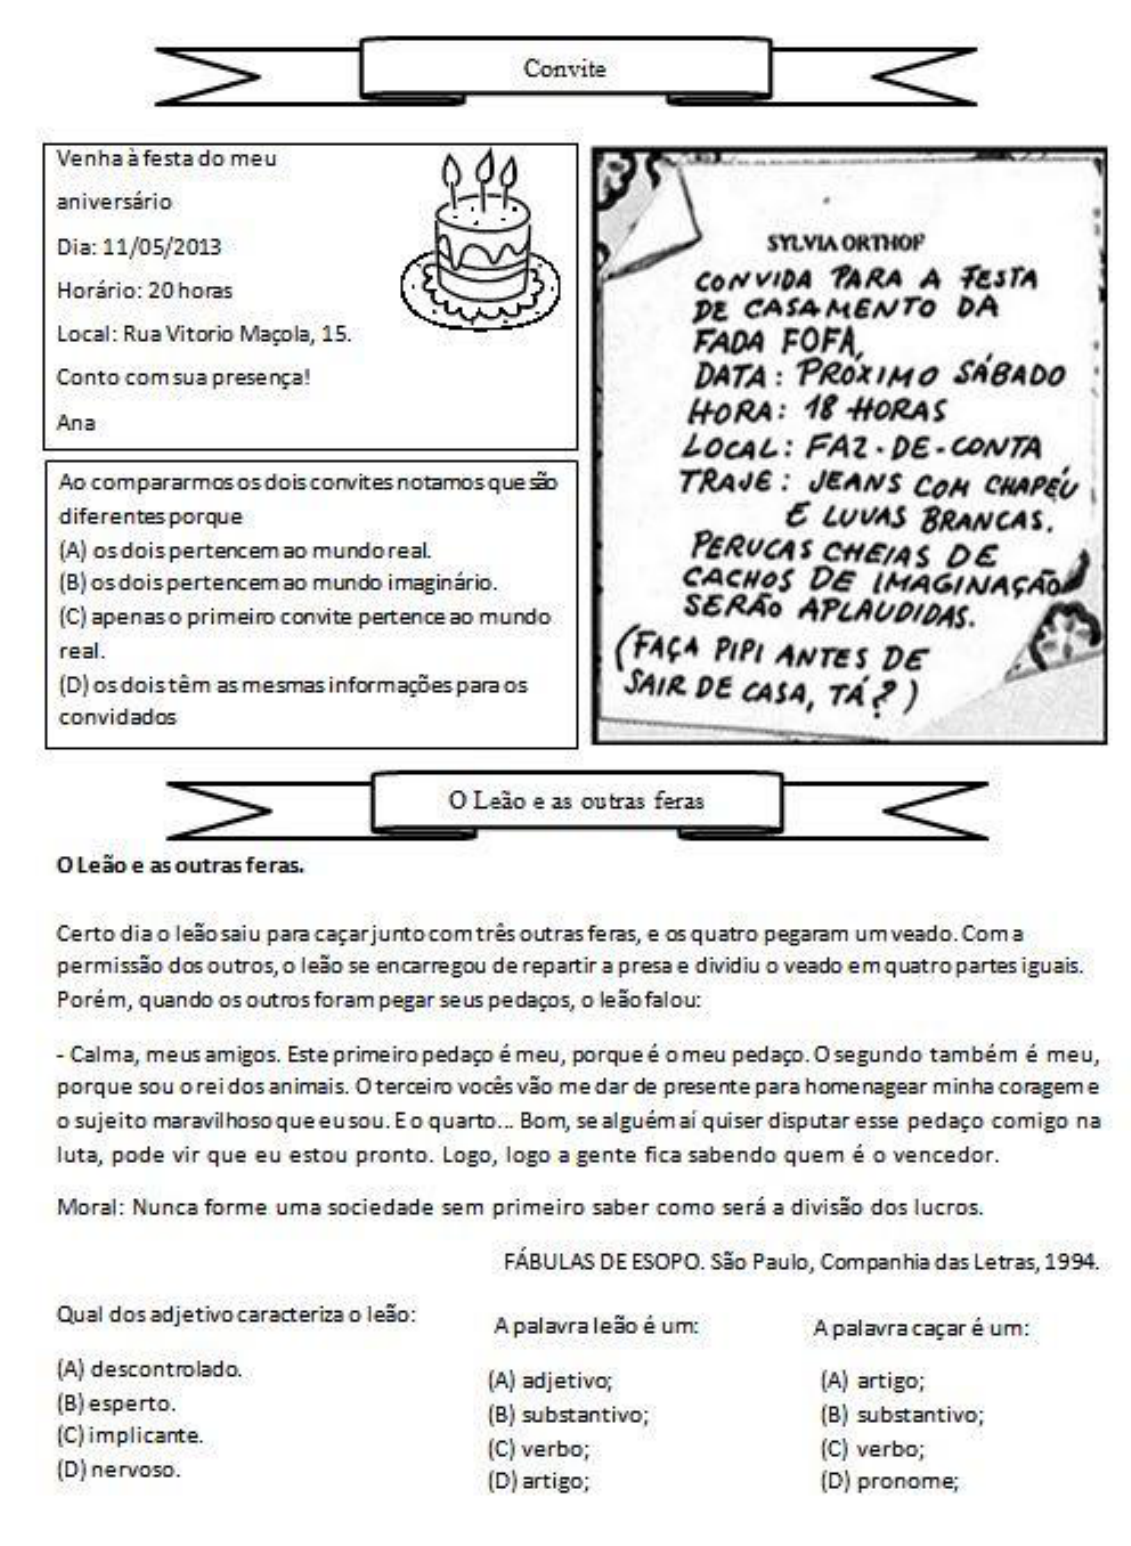 Convite
Venha à festa do meu
aniversário
Dia: 11/05/2013
Horário: 20 horas
Local: Rua Vitorio Maçola, 15.
Conto com sua presença!
Ana
Ao compararmos os dois convites notamos que são
diferentes porque
(A) os dois pertencem ao mundo real.
(B) os dois pertencem ao mundo imaginário.
(C) apenas o primeiro convite pertence ao mundo
real.
(D) os dois têm as mesmas informações para os
convidados
SYLVIA ORTHOF
CONVIDA PARA A FESTA
DE CASAMENTO DA
FADA FOFA,
DATA: PRÓXIMO SÁBADO
HORA: 18 HORAS
LOCAL: FAZ-DE-CONTA
TRAJE: JEANS COM CHAPÉU
E LUVAS BRANCAS.
PERUCAS CHEIAS DE
CACHOS DE IMAGINAÇÃO
SERÃO APLAUDIDAS.
(FAÇA PIPI ANTES DE
SAIR DE CASA, TÁ?)
O Leão e as outras feras
O Leão e as outras feras.
Certo dia o leão saiu para caçar junto com três outras feras, e os quatro pegaram um veado. Com a
permissão dos outros, o leão se encarregou de repartir a presa e dividiu o veado em quatro partes iguais.
Porém, quando os outros foram pegar seus pedaços, o leão falou:
- Calma, meus amigos. Este primeiro pedaço é meu, porque é o meu pedaço. O segundo também é meu,
porque sou o rei dos animais. O terceiro vocês vão me dar de presente para homenagear minha coragem e
o sujeito maravilhoso que eu sou. E o quarto... Bom, se alguém aí quiser disputar esse pedaço comigo na
luta, pode vir que eu estou pronto. Logo, logo a gente fica sabendo quem é o vencedor.
Moral: Nunca forme uma sociedade sem primeiro saber como será a divisão dos lucros.
FÁBULAS DE ESOPO. São Paulo, Companhia das Letras, 1994.
Qual dos adjetivo caracteriza o leão:
(A) descontrolado.
(B) esperto.
(C) implicante.
(D) nervoso.
A palavra leão é um:
(A) adjetivo;
(B) substantivo;
(C) verbo;
(D) artigo;
A palavra caçar é um:
(A) artigo;
(B) substantivo;
(C) verbo;
(D) pronome;